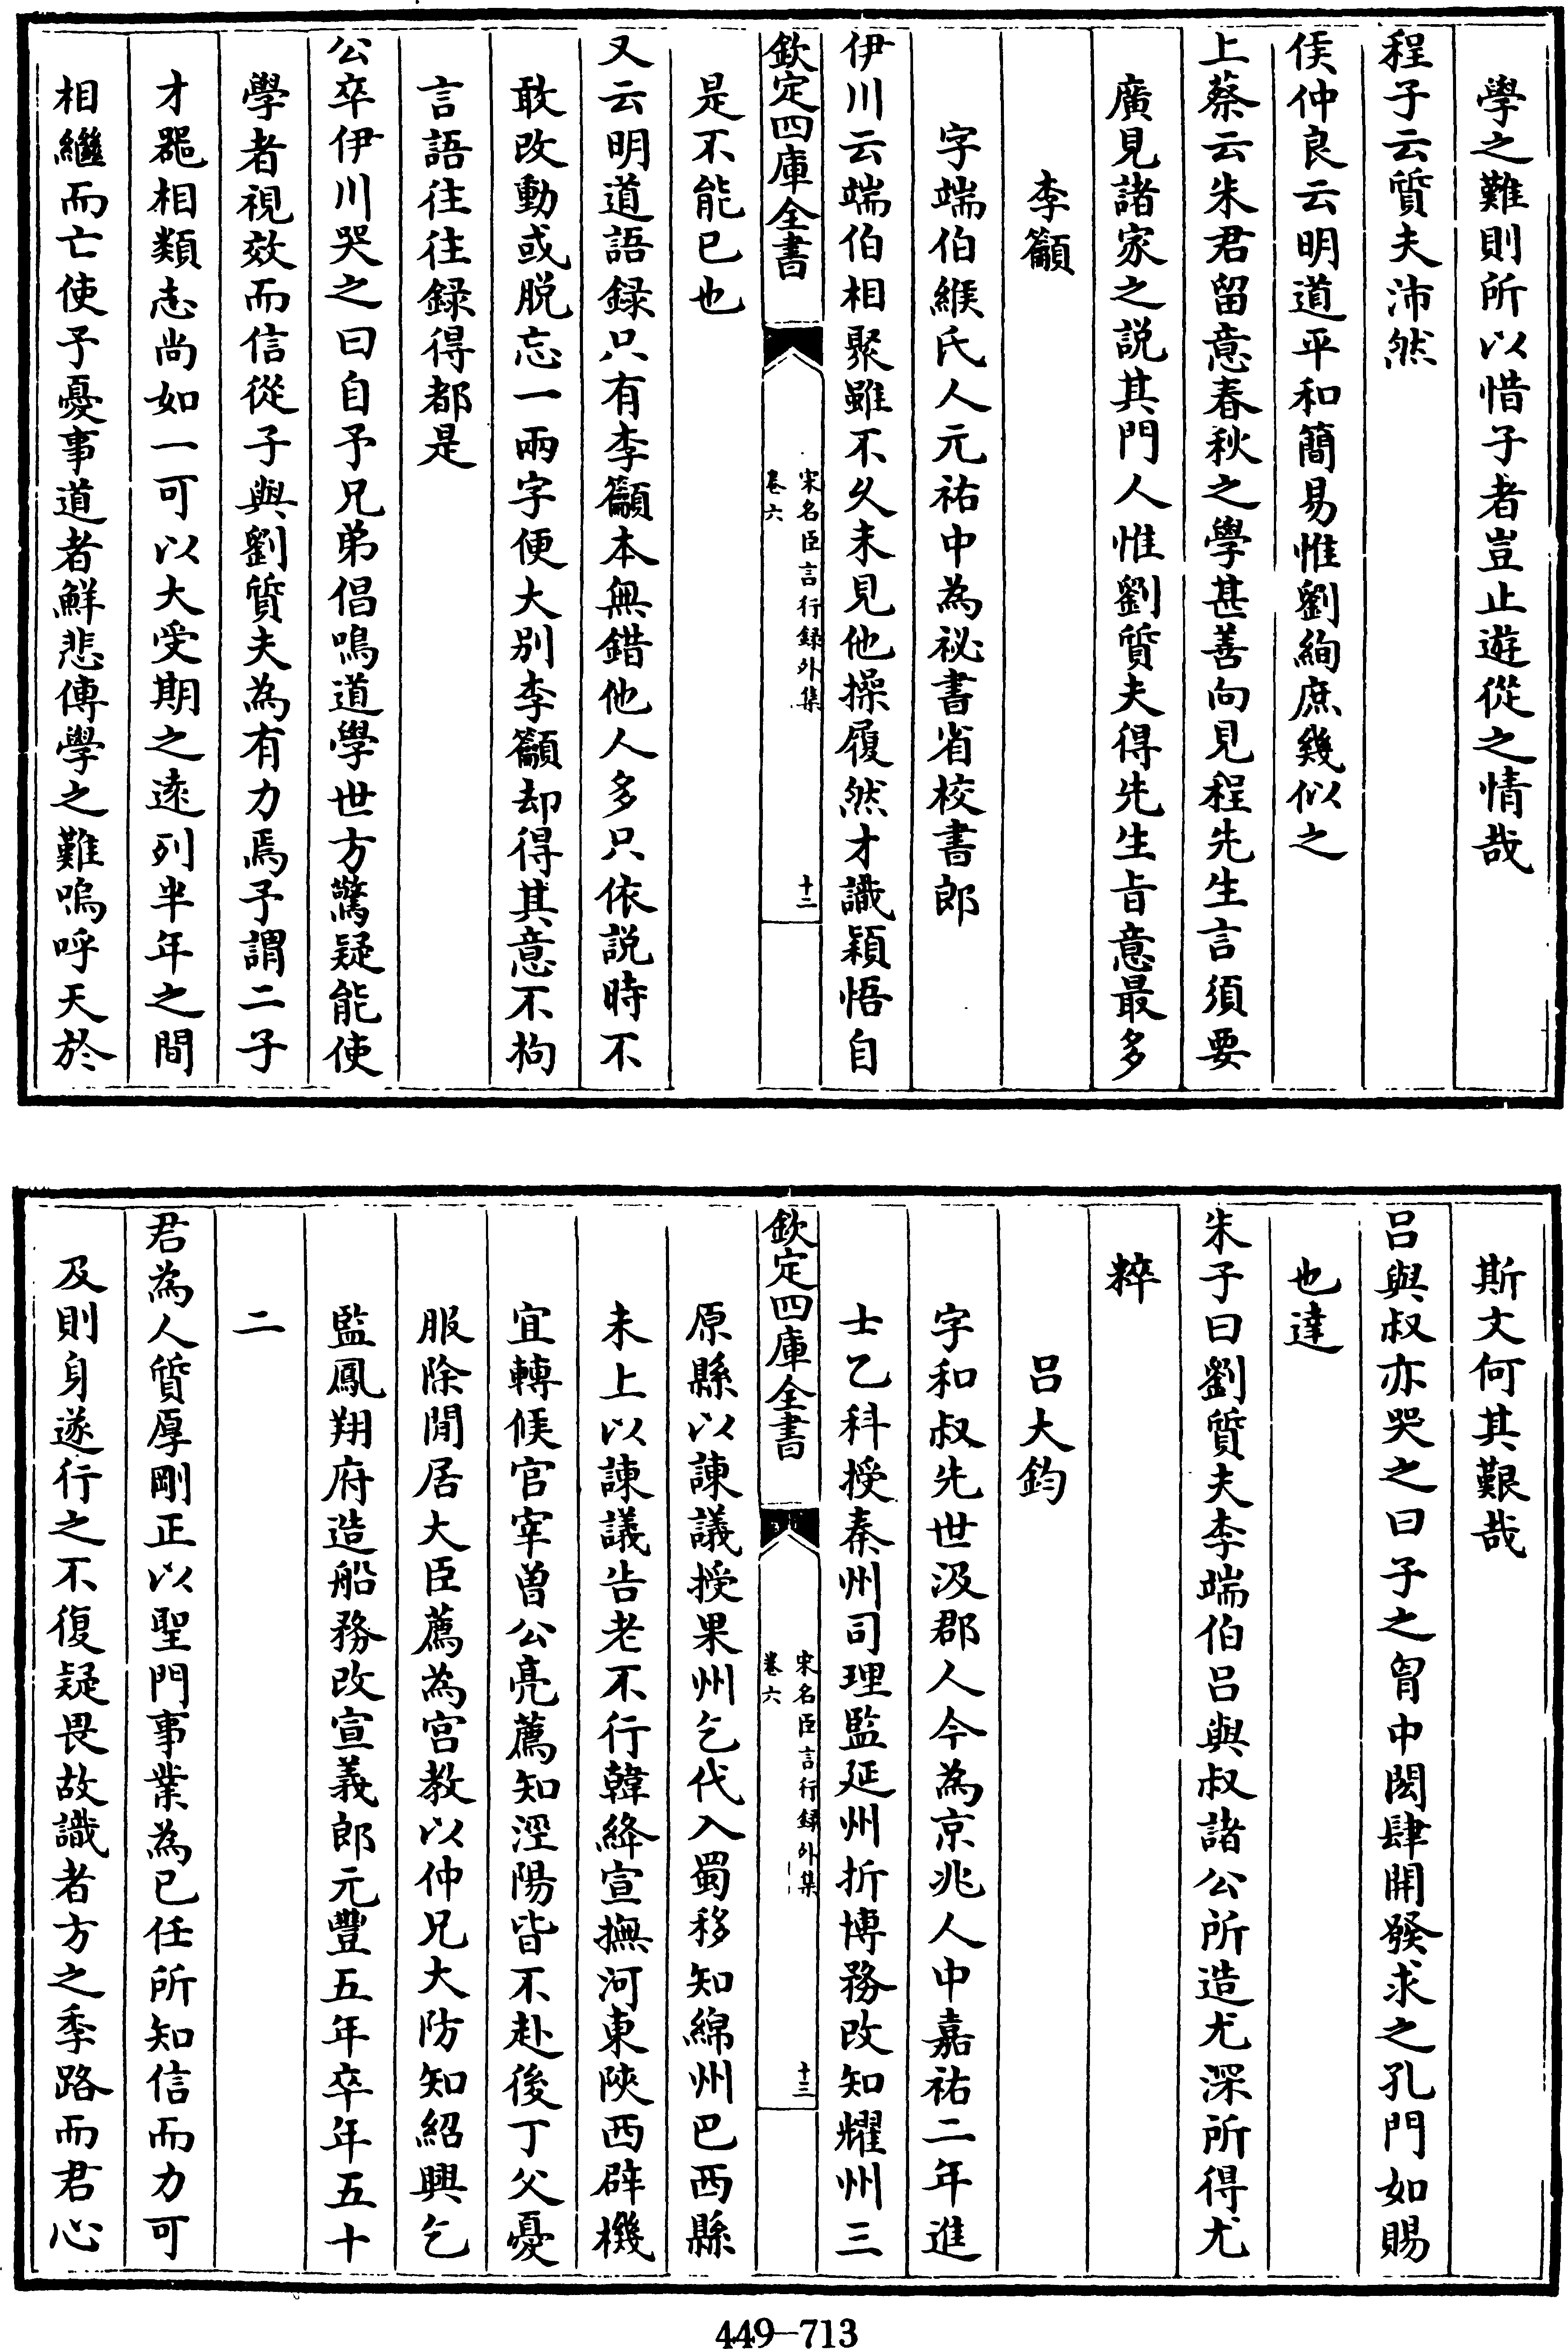 學之難則所以惜子者豈止遊從之情哉
程子云質夫沛然
侯仲良云明道平和簡易惟劉絢庶幾似之
上蔡云朱君留意春秋之學甚善向見程先生言須要
廣見諸家之説其門人惟劉質夫得先生旨意最多
李籲
字端伯緱氏人元祐中為祕書省校書郎
伊川云端伯相聚雖不久未見他操履然才識穎悟自
欽定四庫全書
宋名臣言行録外集
卷六
十二
是不能已也
又云明道語録只有李籲本無錯他人多只依説時不
敢改動或脱忘一兩字便大别李籲却得其意不拘
言語往往録得都是
公卒伊川哭之曰自予兄弟倡鳴道學世方驚疑能使
學者視效而信從子與劉質夫為有力焉予謂二子
才噐相類志尚如一可以大受期之遠列半年之間
相繼而亡使予憂事道者鮮悲傳學之難嗚呼天於
斯文何其艱哉
吕與叔亦哭之曰子之胷中閎肆開發求之孔門如賜
也達
朱子曰劉質夫李端伯吕與叔諸公所造尤深所得尤
粹
吕大鈞
字和叔先世汲郡人今為京兆人中嘉祐二年進
士乙科授秦州司理監延州折博務改知耀州三
欽定四庫全書
宋名臣言行録外集
卷六
十三
原縣以諫議授果州乞代入蜀移知綿州巴西縣
未上以諫議告老不行韓絳宣撫河東陜西辟機
宜轉候官宰曽公亮薦知涇陽皆不赴後丁父憂
服除閒居大臣薦為宫教以仲兄大防知紹興乞
監鳳翔府造船務改宣義郎元豐五年卒年五十
二
君為人質厚剛正以聖門事業為已任所知信而力可
及則身遂行之不復疑畏故識者方之季路而君心
449—713